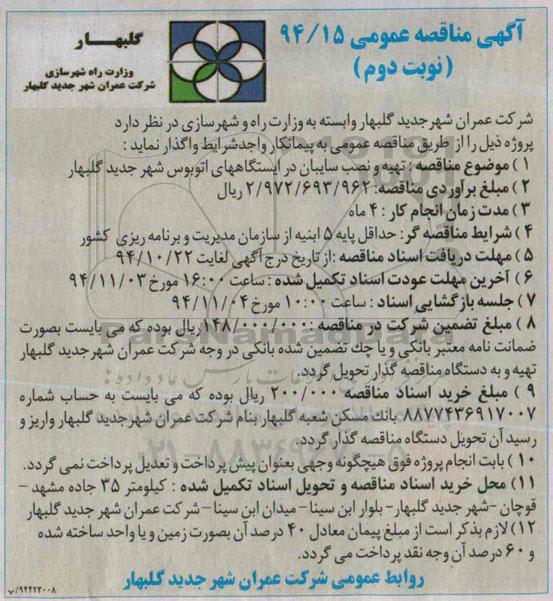 آگهی مناقصه عمومی ۹۴/۱۵
(نوبت دوم)
گلبهار
وزارت راه شهرسازی
شرکت عمران شهر جدید گلبهار
شرکت عمران شهر جدید گلبهار وابسته به وزارت راه و شهرسازی در نظر دارد
پروژه ذیل را از طریق مناقصه عمومی به پیمانکار واجدشرایط واگذار نماید :
۱) موضوع مناقصه : تهیه و نصب سایبان در ایستگاههای اتوبوس شهر جدید گلبهار
۲) مبلغ برآوردی مناقصه: ۲/۹۷۲/۶۹۳/۹۶۲ ریال
۳) مدت زمان انجام کار : ۴ ماه
۴) شرایط مناقصه گر: حداقل پایه ۵ ابنیه از سازمان مدیریت و برنامه ریزی کشور
۵) مهلت دریافت اسناد مناقصه :از تاریخ درج آگهی لغایت ۹۴/۱۰/۲۲
۶) آخرین مهلت عودت اسناد تکمیل شده : ساعت ۱۶:۰۰ مورخ ۹۴/۱۱/۰۳
۷) جلسه بازگشایی اسناد : ساعت ۱۰:۰۰ مورخ ۹۴/۱۱/۰۴
۸) مبلغ تضمین شرکت در مناقصه :۱۴۸/۰۰۰/۰۰۰ ریال بوده که می بایست بصورت
ضمانت نامه معتبر بانکی و یا چک تضمین شده بانکی در وجه شرکت عمران شهر جدید گلبهار
تهیه و به دستگاه مناقصه گذار تحویل گردد.
۹) مبلغ خرید اسناد مناقصه ۲۰۰/۰۰۰ ریال بوده که می بایست به حساب شماره
۸۸۷۷۴۳۶۹۱۷۰۰۷ بانک مسکن شعبه گلبهار بنام شرکت عمران شهر جدید گلبهار واریز و
رسید آن تحویل دستگاه مناقصه گذار گردد.
۱۰) بابت انجام پروژه فوق هیچگونه وجهی بعنوان پیش پرداخت و تعدیل پرداخت نمی گردد.
۱۱) محل خرید اسناد مناقصه و تحویل اسناد تکمیل شده : کیلومتر ۳۵ جاده مشهد -
قوچان -شهر جدید گلبهار- بلوار ابن سینا- میدان ابن سینا-شرکت عمران شهر جدید گلبهار
۱۲) لازم بذکر است از مبلغ پیمان معادل ۴۰ درصد آن بصورت زمین و یا واحد ساخته شده
و ۶۰ درصد آن وجه نقد پرداخت می گردد.
روابط عمومی شرکت عمران شهر جدید گلبهار
۹۴۴۲۳۰۰۸/پ